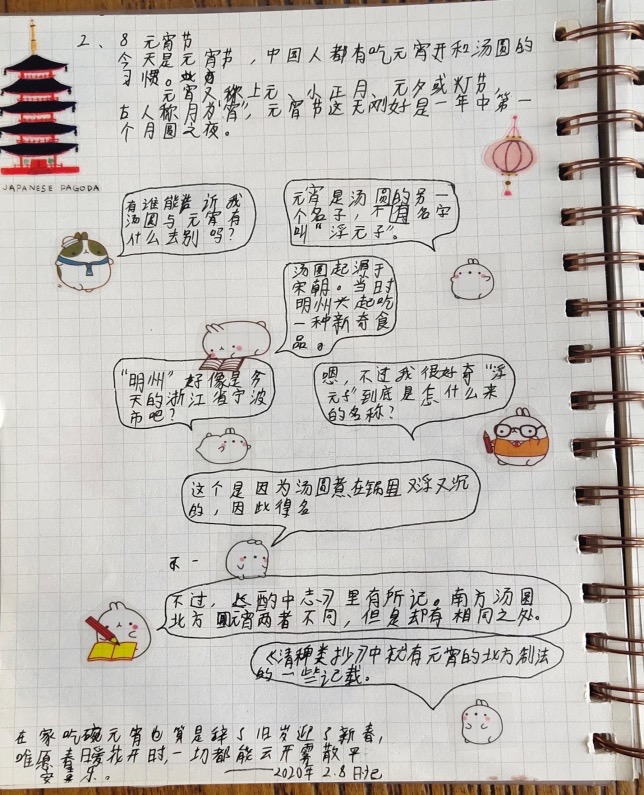 2、8 元宵节
今天是元宵节，中国人都有吃元宵和汤圆的
习惯。
元宵又称上元、小正月、元夕或灯节，
古人称月为"宵"，元宵节这天刚好是一年中第一
个月圆之夜。
JAPANESE PAGODA
有谁能告诉我
汤圆与元宵有
什么去别吗？
元宵是汤圆的另一
个名字，不有名字
叫"浮元子"。
汤圆起源于
宋朝。当时
明州兴起吃
一种新奇食
品。
"明州"好像是今
天的浙江省宁波
市吧？
嗯，不过我很好奇"浮
元子"到底是怎什么来
的名称？
这个是因为汤圆煮在锅里又浮又沉
的，因此得名
不一
不过，《酌中志》里有所记。南方汤圆
北方元宵两者不同，但是却有相同之处。
《清稗类抄》中就有元宵的北方制法
的一些记载。
在家吃碗元宵也算是辞了旧岁迎了新春，
唯愿春日暖花开时，一切都能云开雾散平
安喜乐。
——2020年2.8日记